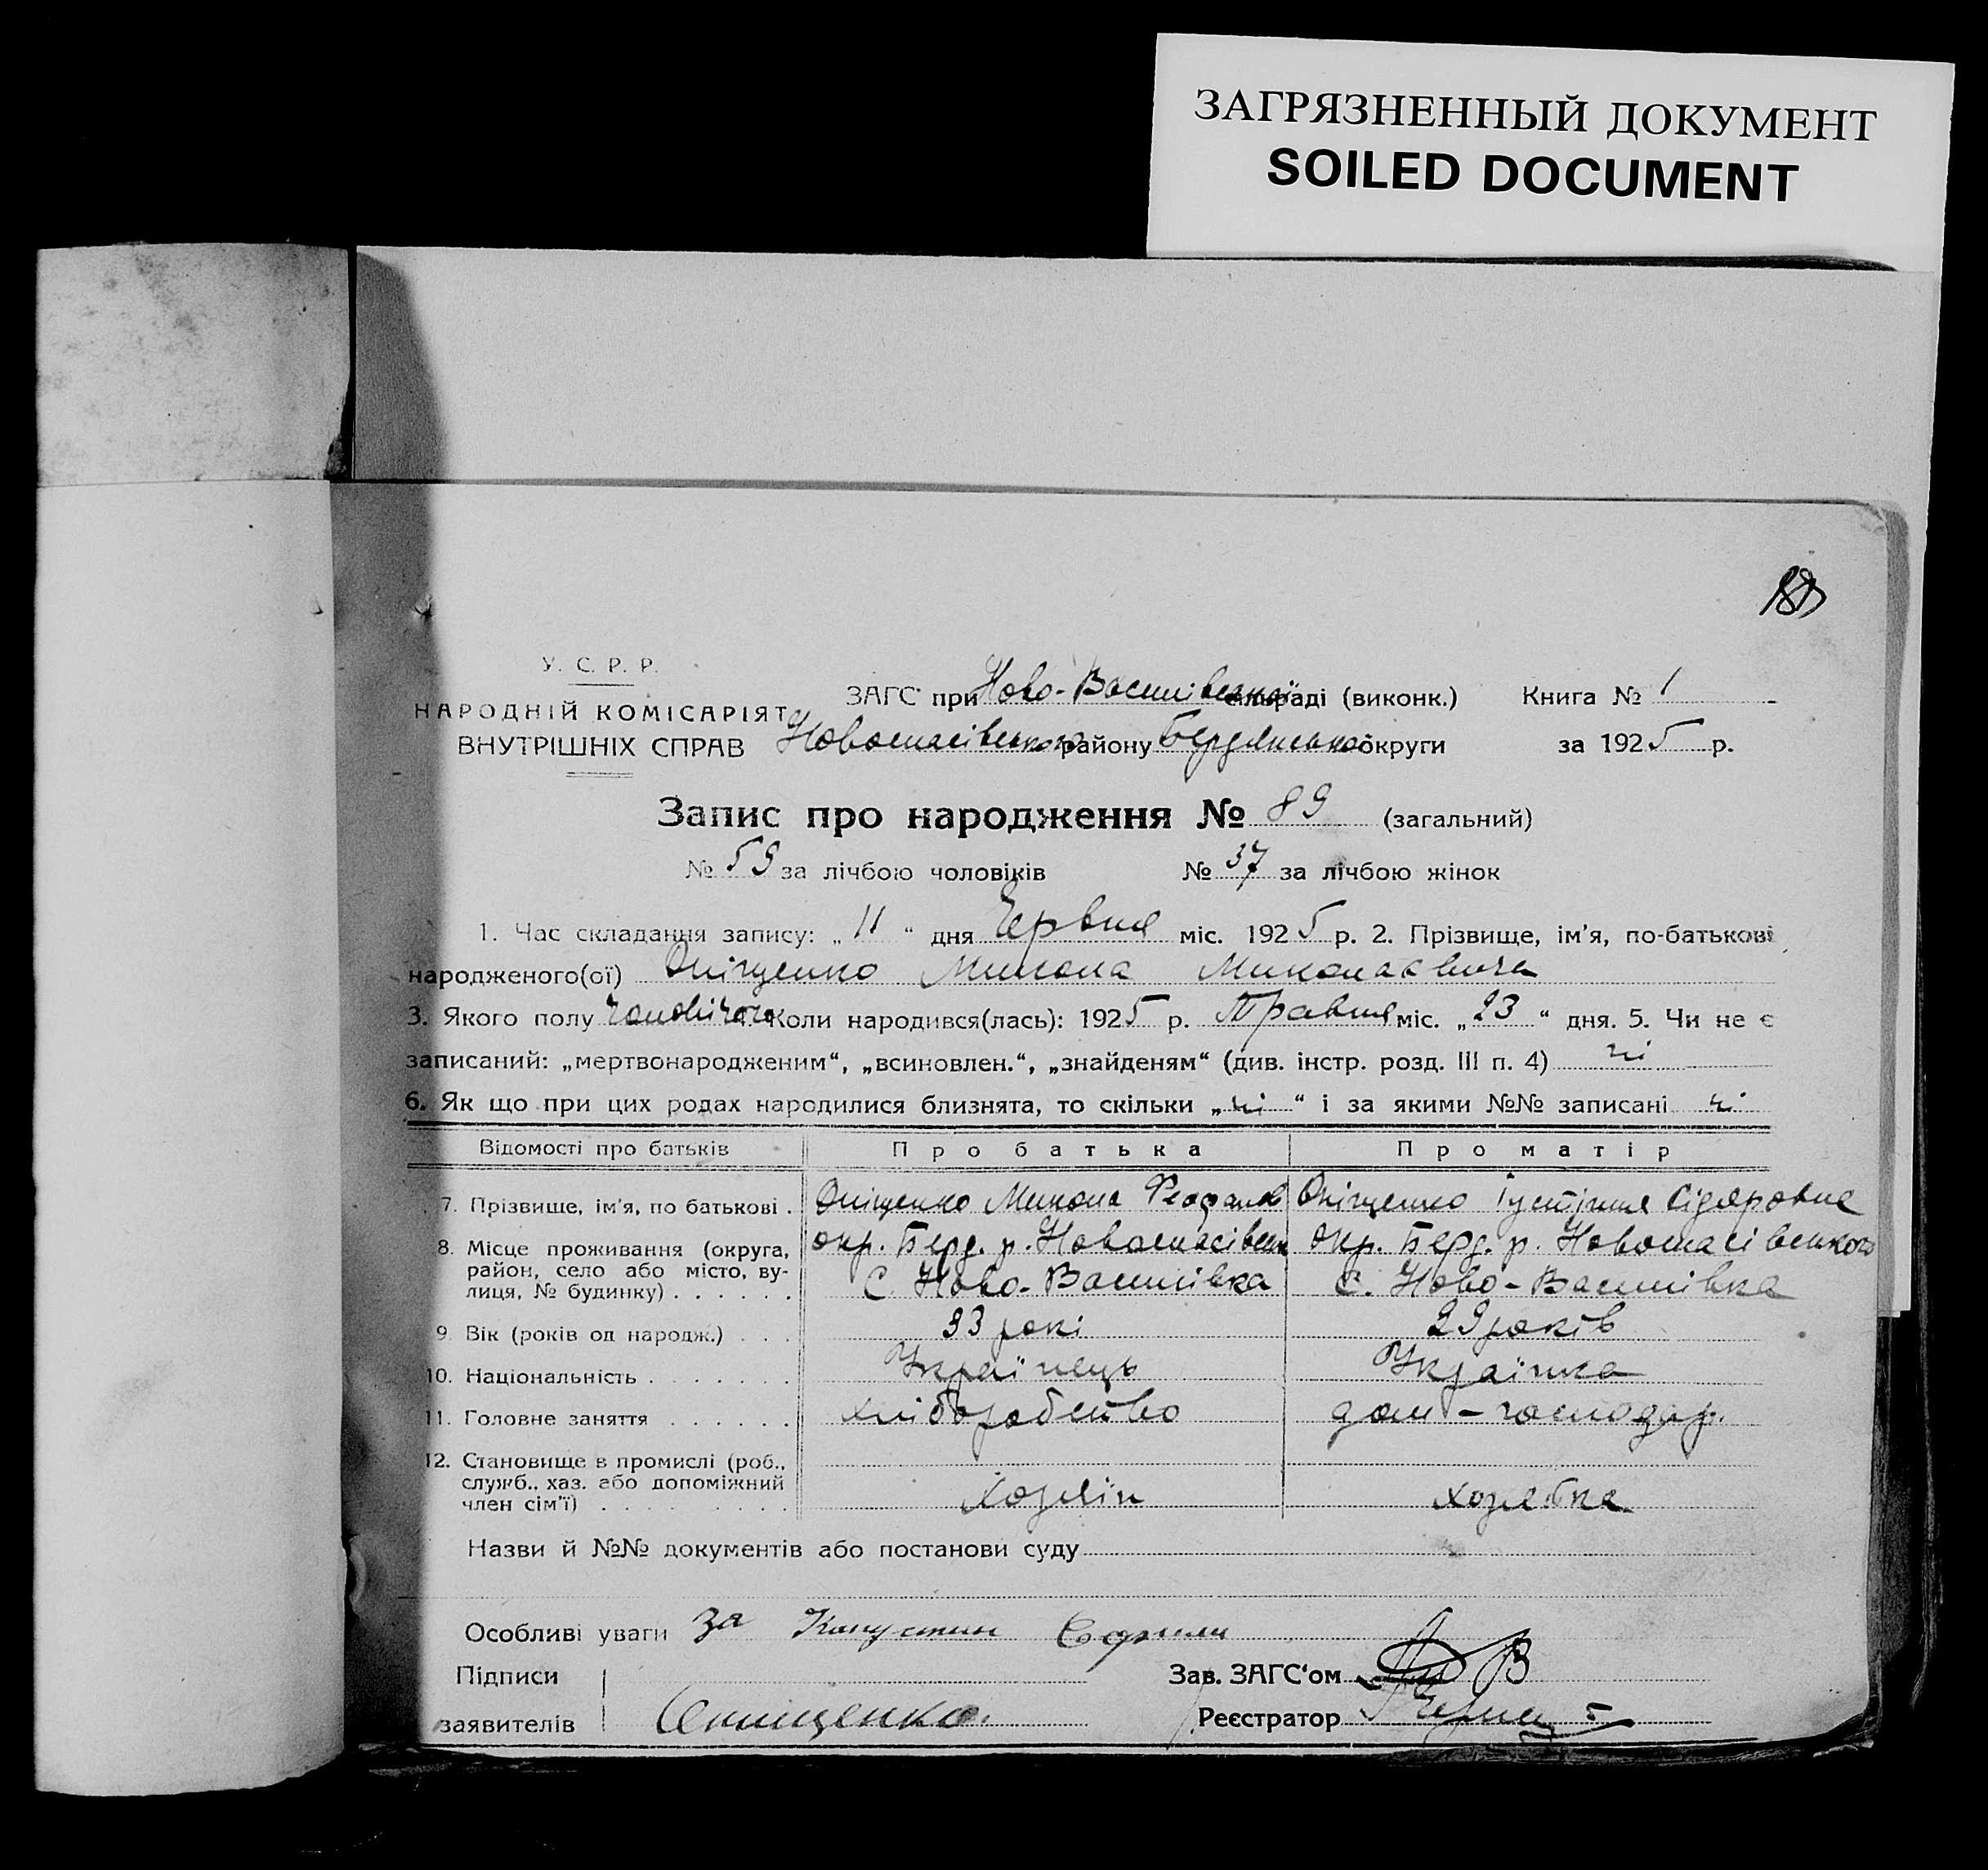 ЗАГРЯЗНЕННЫЙ ДОКУМЕНТ
SOILED DOCUMENT
У. С. Р. Р.
НАРОДНІЙ КОМІСАРІЯТ
ВНУТРІШНІХ СПРАВ
ЗАГС при Ново-Василівській сільраді (виконк.) Книга № 1
Новоспасівського району Бердянської округи за 1925 р.
Запис про народження № 89 (загальний)
№ 59 за лічбою чоловіків № 37 за лічбою жінок
1. Час складання запису: „ 11 “ дня Червня міс. 1925 р. 2. Прізвище, ім'я, по-батькові
народженого(ої) Оніщенко Микола Миколаєвича
3. Якого полу чоловічого Коли народився(лась): 1925 р. Травня міс. „ 23 “ дня. 5. Чи не є
записаний: „мертвонародженим“, „всиновлен.“, „знайденям“ (див. інстр. розд. III п. 4) ні
6. Як що при цих родах народилися близнята, то скільки „ ні “ і за якими №№ записані ні
Відомості про батьків Про батька Про матір
7. Прізвище, ім'я, по батькові . Оніщенко Микола Оніщенко Іустінія Сідоровна
8. Місце проживання (округа, район, село або місто, вулиця, № будинку) . . . . . . окр. Берд. р. Новоспасівськ окр. Берд. р. Новоспасівського
С. Ново-Василівка с. Ново-Василівка
9. Вік (років од народж.) . . . 33 рокі 29 років
10. Національність . . . . . . . Українець Українка
11. Головне заняття . . . . . . Хліборобство дом-господар.
12. Становище в промислі (роб., служб., хаз. або допоміжний член сім'ї) . . . . . . . . . Хозяїн хозяйка
Назви й №№ документів або постанови суду
Особливі уваги за
Підписи Зав. ЗАГС'ом
заявителів Оніщенко. Реєстратор